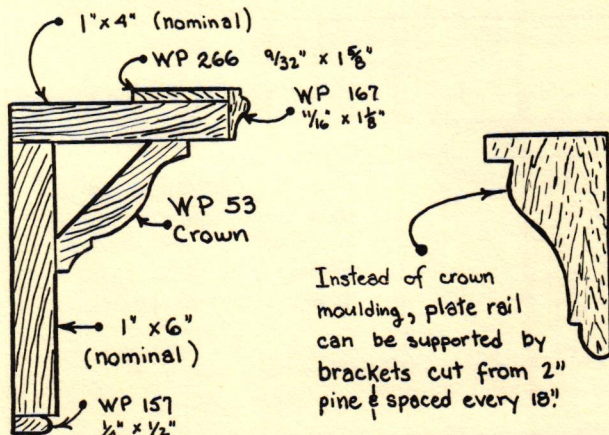 1" x 4" (nominal)
WP 266 9/32" x 1 5/8"
WP 167
11/16" x 1 1/8"
WP 53
Crown
1" x 6"
(nominal)
WP 157
1/4" x 1/2"
Instead of crown
moulding, plate rail
can be supported by
brackets cut from 2"
pine & spaced every 18".